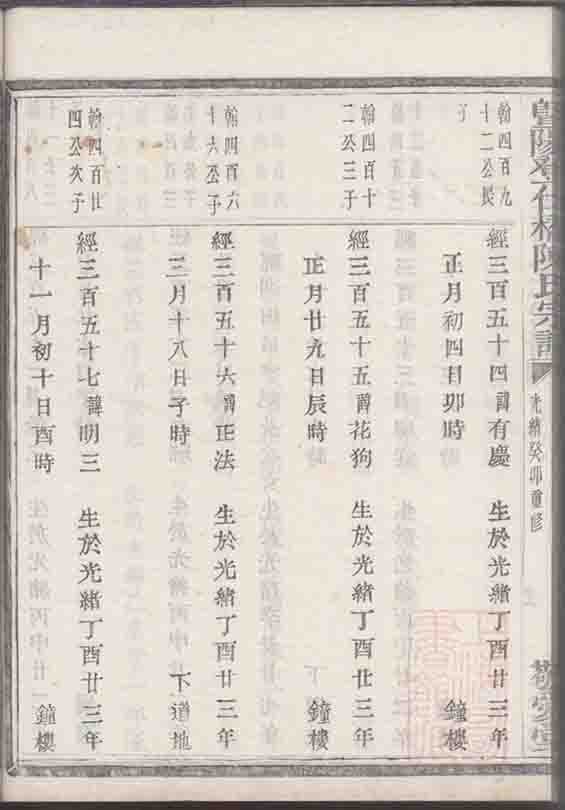 暨陽
橋陳氏宗譜
光緒癸卯重修
翰四百九
十二公長
子
經三百五十四諱有慶 生於光緒丁酉廿三年
正月初四日卯時 鐘樓
翰四百十
二公三子
經三百五十五諱花狗 生於光緒丁酉廿三年
正月廿九日辰時 鐘樓
翰四百六
十六公子
經三百五十六諱正法 生於光緒丁酉廿三年
三月十八日子時 下道地
翰四百廿
四公次子
經三百五十七諱明三 生於光緒丁酉廿三年
十一月初十日酉時 鐘樓